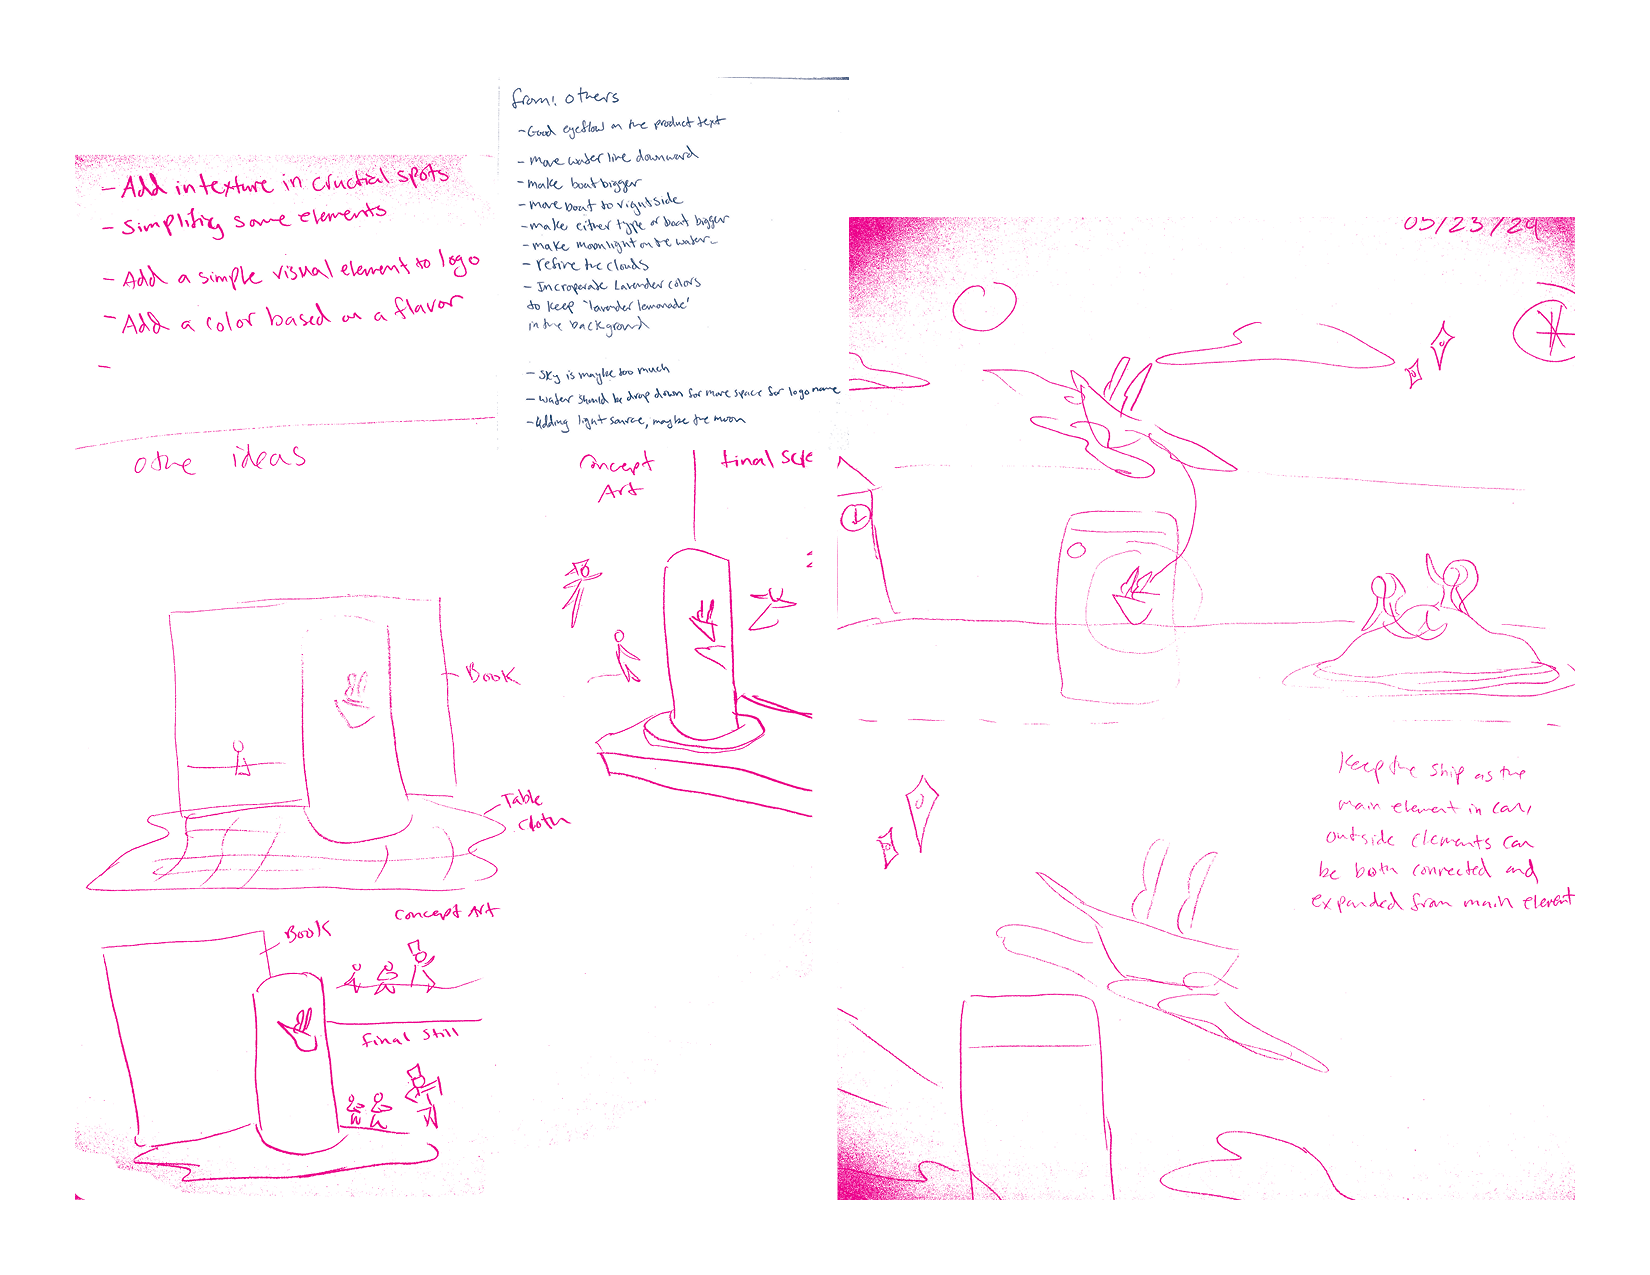 - Add in texture in cructial spots
- Simplifiy some elements
- Add a simple visual element to logo
- Add a color based on a flavor
-
from: others
- Good eyeflow on the product text
- move water line downward
- make boat bigger
- move boat to rightside
- make either type or boat bigger
- make moonlight on the water
- refine the clouds
- Incroperate Lavender colors
to keep 'lavender lemonade'
in the background
- Sky is maybe too much
- water should be drop down for more space for logo name
- Adding light source, maybe the moon
othe ideas
Concept
Art
final
Book
Table
Cloth
Concept Art
Book
final still
05/23/24
Keep the ship as the
main element in can,
outside elements can
be both connected and
expanded from main element